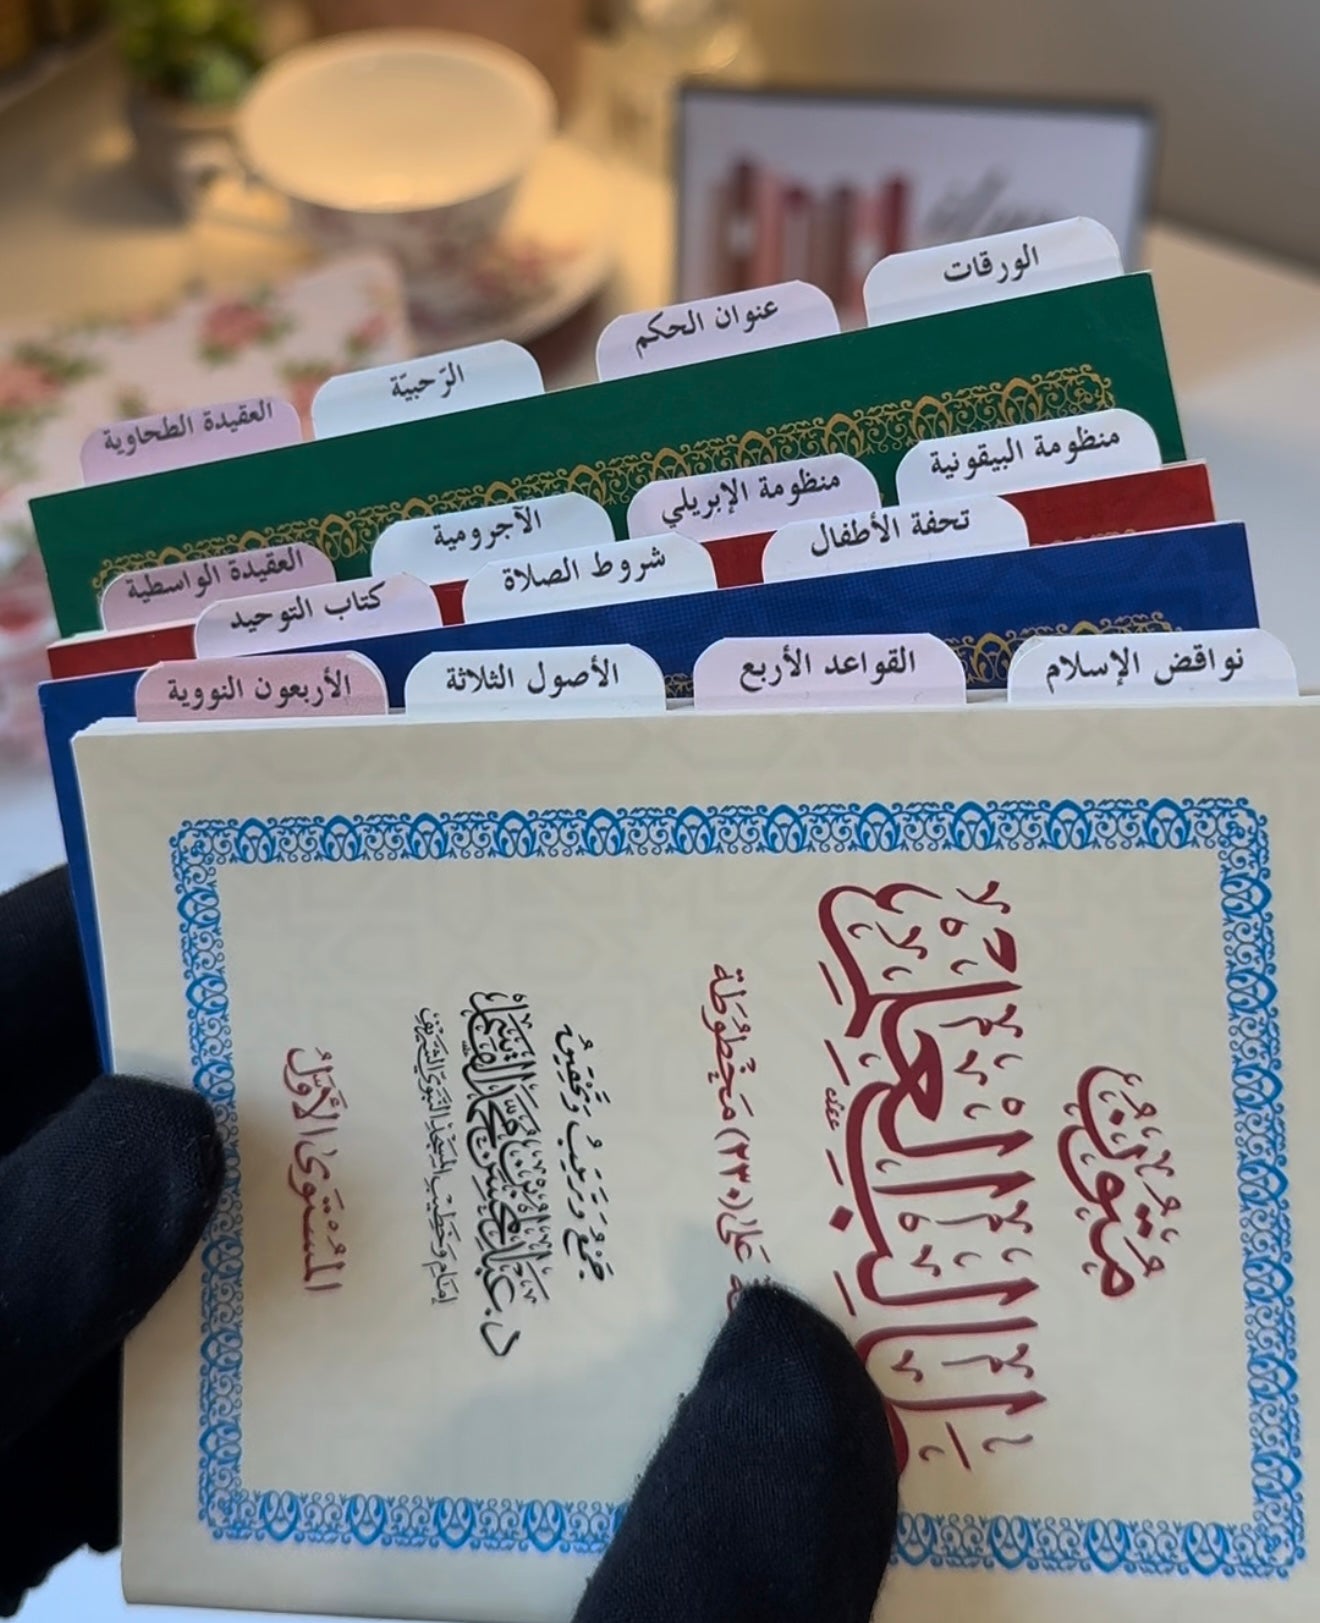 الورقات
عنوان الحكم
الرّحبيّة
العقيدة الطحاوية
منظومة البيقونية
منظومة الإبريلي
الآجرومية
العقيدة الواسطية
تحفة الأطفال
شروط الصلاة
كتاب التوحيد
نواقض الإسلام
القواعد الأربع
الأصول الثلاثة
الأربعون النووية
مُتُونُ
طَالِبِ الْعِلْمِ
عَلَىٰ (٢٣٠) مَخْطُوطَة
جَمْعُ وَتَرْتِيبُ وَتَحْقِيقُ
د. عَبْدِ الْمُحْسِنِ بْنِ مُحَمَّدٍ الْقَاسِمِ
إمام وخطيب المسجد النبوي الشريف
الْمُسْتَوَىٰ الْأَوَّلُ